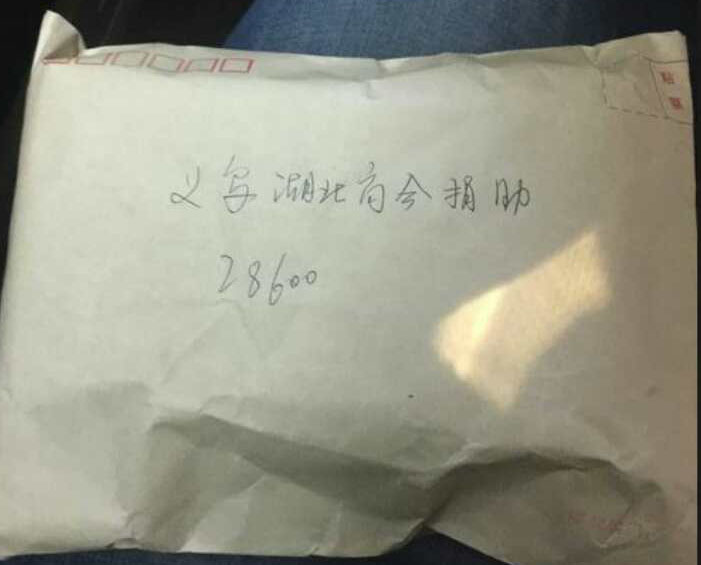 义乌湖北商会捐助
28600
贴票